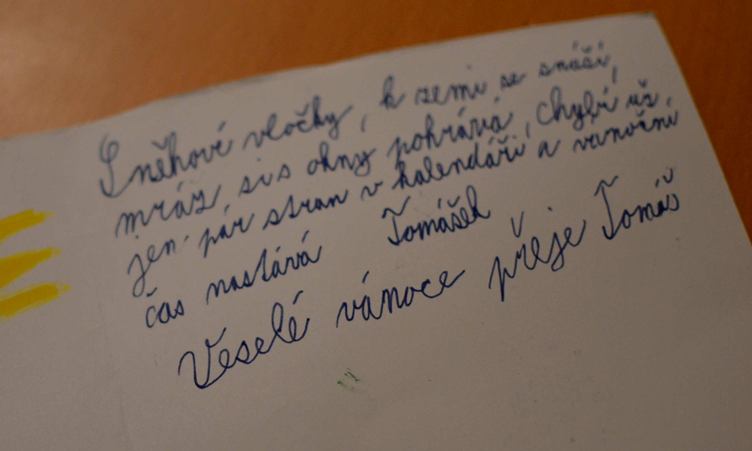 Sněhové vločky, k zemi se snáší,
mráz, si s okny pohrává, chybí už,
jen pár stran v kalendáři, a vánoční
čas nastává Tomášek
Veselé vánoce přeje Tomáš